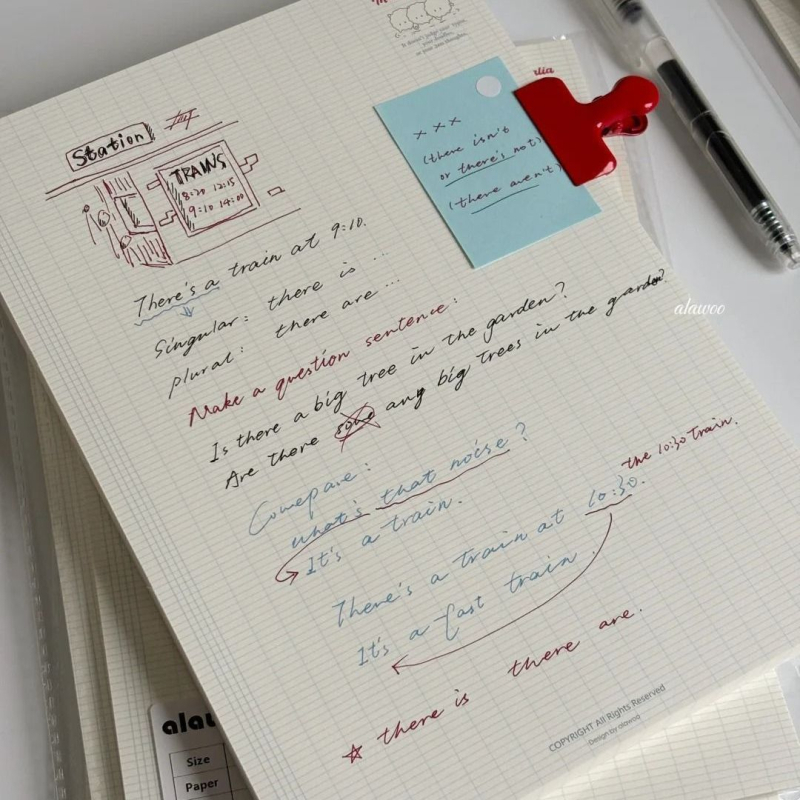 Station
TRAINS
8:20 12:15
9:10 14:00
×××
(there isn't
or there's not)
(there aren't)
There's a train at 9:10.
Singular: there is ...
plural: there are ...
Make a question sentence:
Is there a big tree in the garden?
Are there some any big trees in the garden?
Comepare:
what's that noise?
It's a train.
the 10:30 train.
There's a train at 10:30.
It's a fast train.
☆ there is there are.
COPYRIGHT All Rights Reserved
Design by alawoo
alawoo
Size
Paper